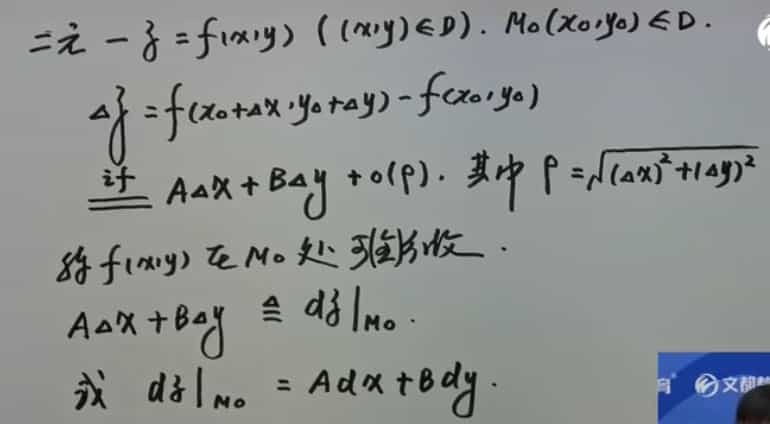 二元 — z = f(x,y) ((x,y)∈D). M₀(x₀,y₀)∈D.
Δz = f(x₀+Δx, y₀+Δy) - f(x₀,y₀)
计 AΔx + BΔy + o(ρ). 其中 ρ = √((Δx)²+(Δy)²)
称 f(x,y) 在 M₀ 处可(全)微.
AΔx + BΔy ≜ dz|M₀.
或 dz|M₀ = Adx + Bdy.
育 文都